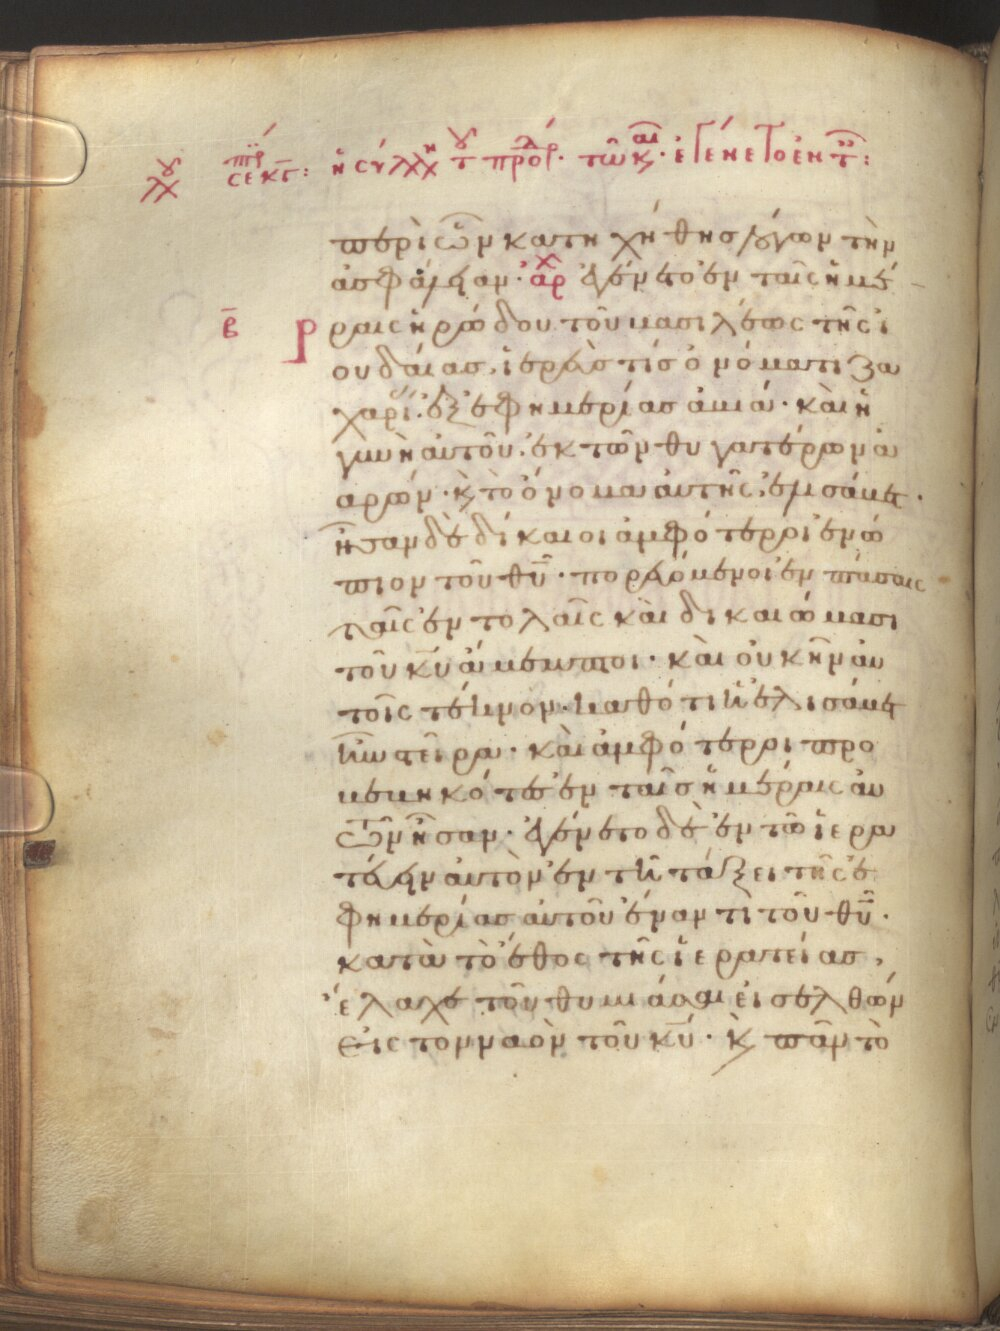 λχου σεκτ: ἡ σύλλη τ πρ. τῶ κ. ἐγένετο ἐν τ:
περὶ ὧν κατηχήθησ λόγων τὴν
ἀσφάλειαν· ἀρχ ἐγένετο ἐν ταῖς ἡμέ
β ραις ἡρώδου τοῦ βασιλέως τῆς ἰ
ουδαίας, ἱερεὺς τίς ὀνόματι ζα
χαρί· ἐξ ἐφημερίας ἀβιά· καὶ ἡ
γυνὴ αὐτοῦ, ἐκ τῶν θυγατέρων ἀ
αρών· κ τὸ ὄνομα αὐτῆς, ἐλισάβετ·
ἦσαν δὲ δίκαιοι ἀμφότεροι ἐνώ
πιον τοῦ θῦ· πορευόμενοι ἐν πάσαις
ταῖς ἐντολαῖς καὶ δικαιώμασι
τοῦ κῦ ἄμεμπτοι· καὶ οὐκ ἦν αὐ
τοῖς τέκνον· καθότι ἡ ἐλισάβετ
ἦν στεῖρα· καὶ ἀμφότεροι προ
βεβηκότες ἐν ταῖς ἡμέραις αὐ
τῶν ἦσαν· ἐγένετο δὲ ἐν τῶ ἱερα
τεύειν αὐτὸν ἐν τῆ τάξει τῆς ἐ
φημερίας αὐτοῦ ἔναντι τοῦ θῦ·
κατὰ τὸ ἔθος τῆς ἱερατείας,
ἔλαχε τοῦ θυμιάσαι εἰσελθών
εἰς τον ναὸν τοῦ κῦ· κ πᾶν τὸ